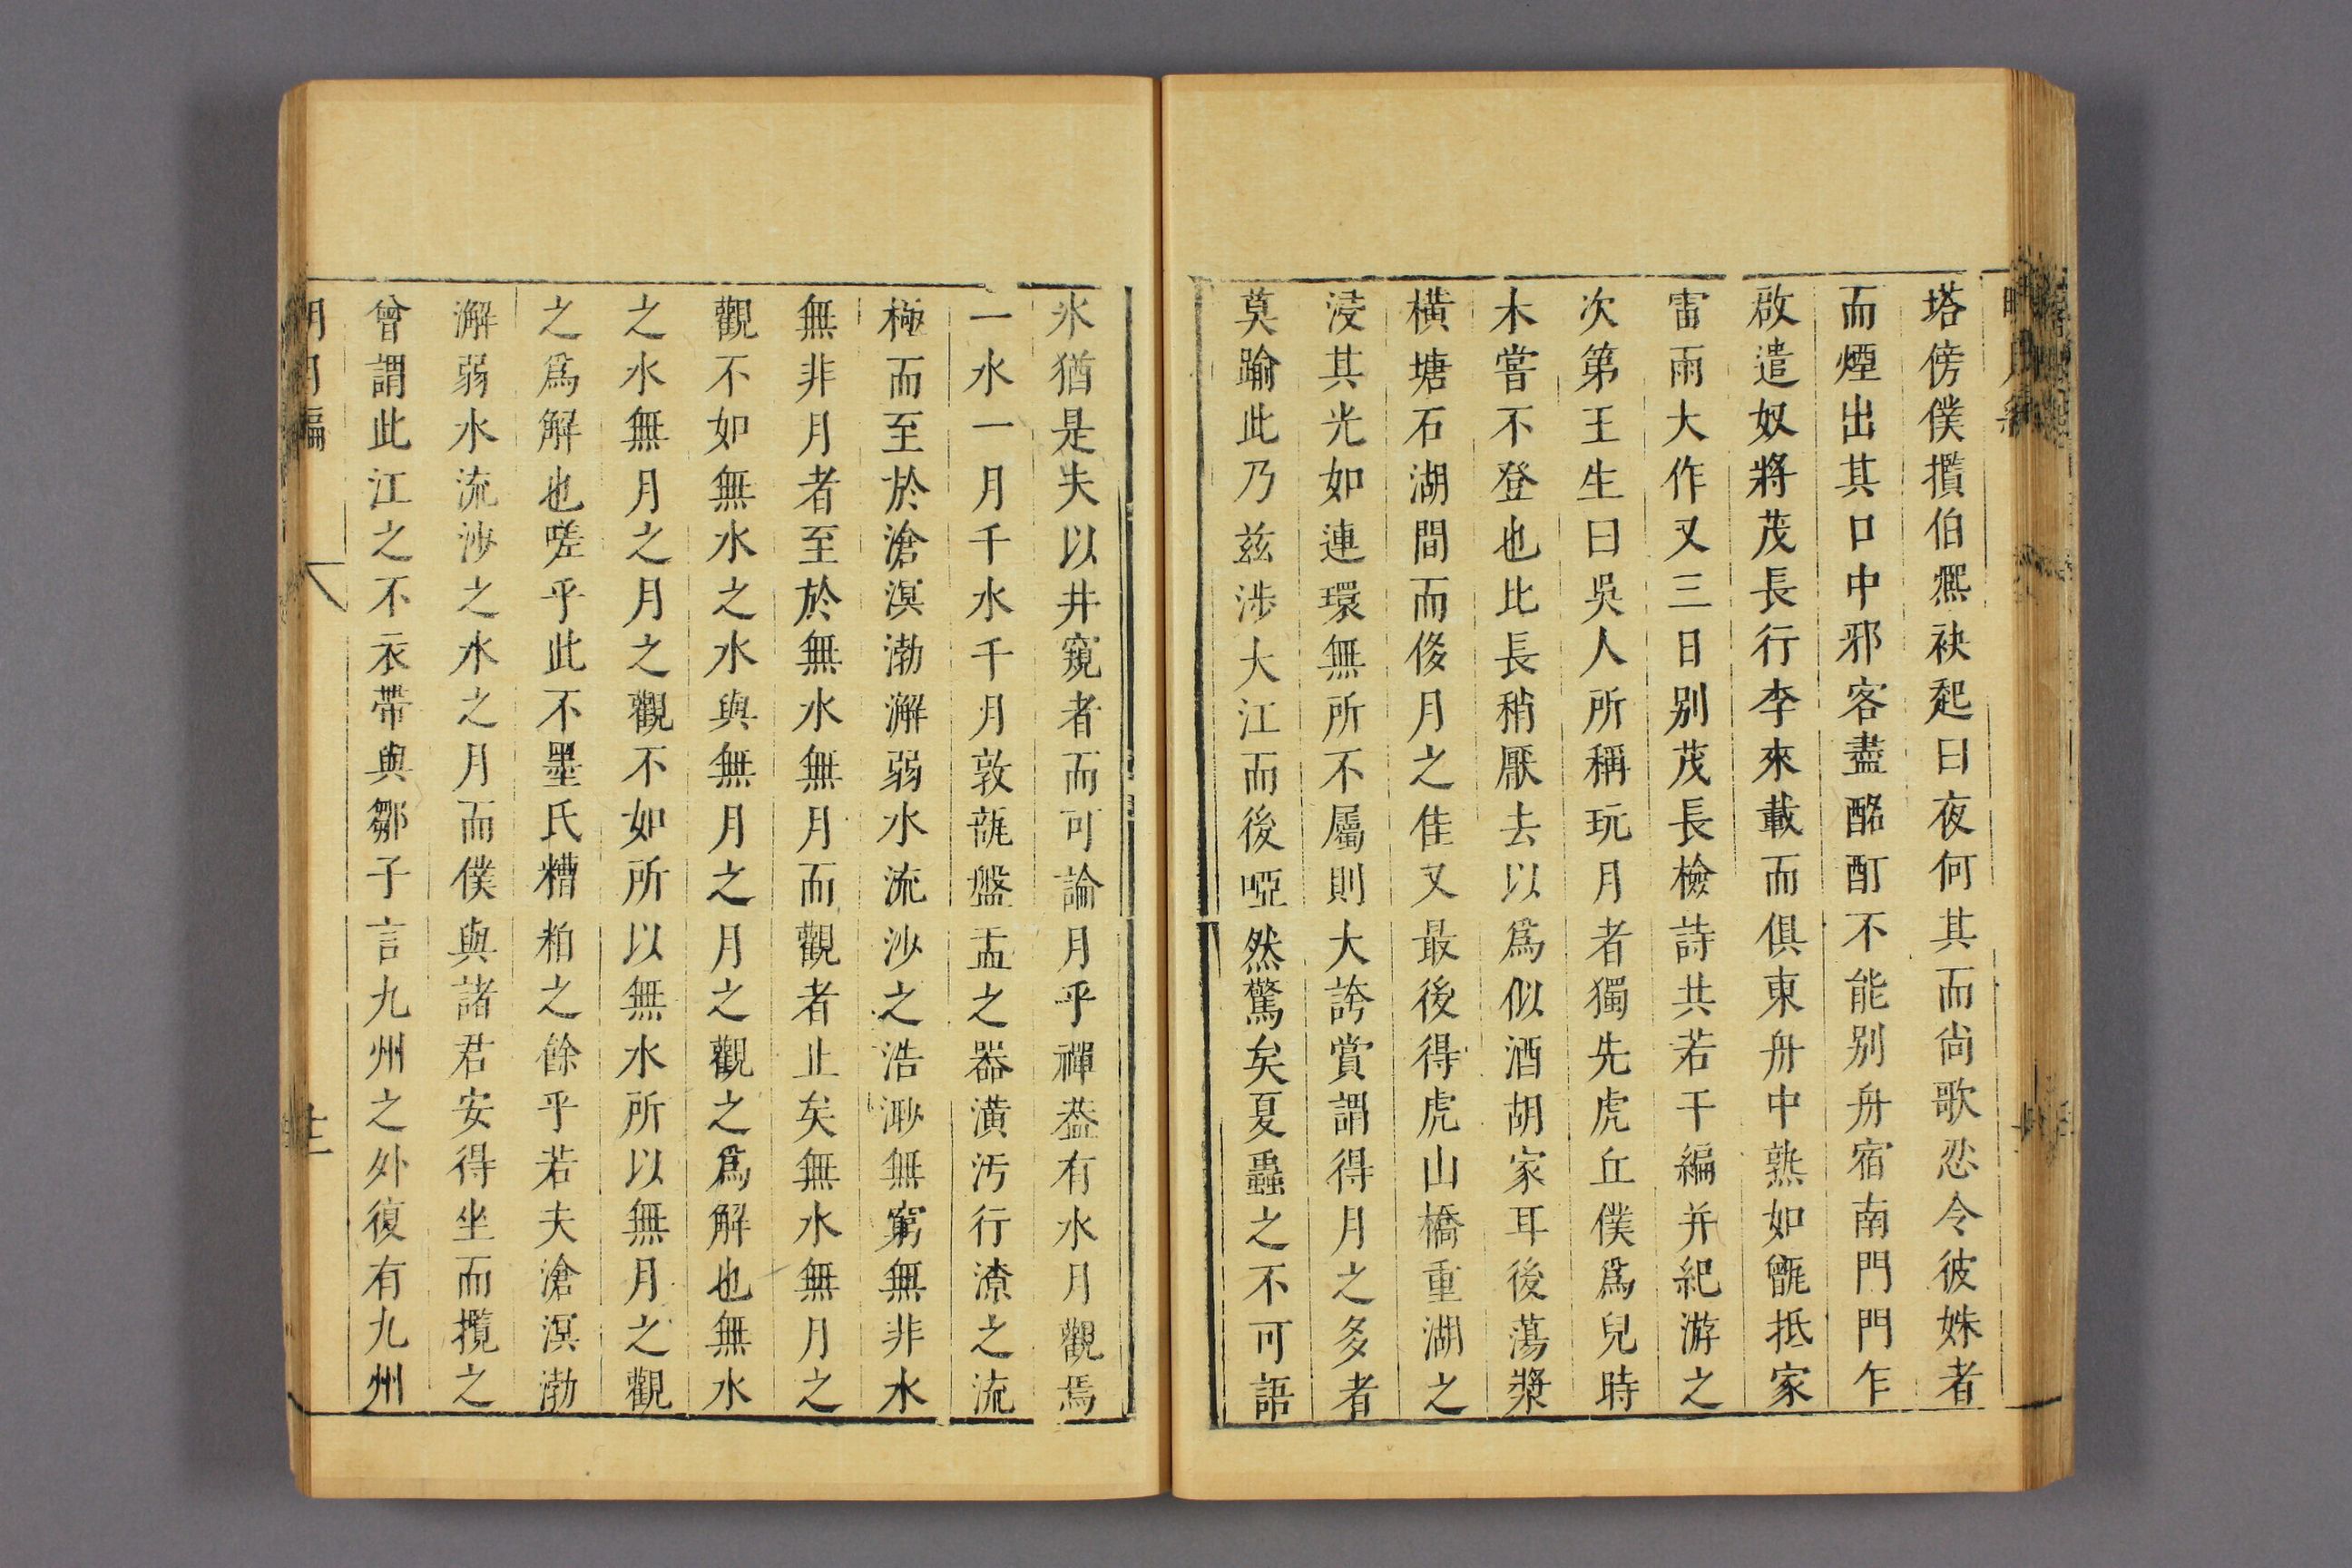 塔傍僕攬伯熈袂起曰夜何其而尚歌恐令彼姝者
而煙出其口中邪客盡酩酊不能别舟宿南門門乍
啟遣奴將茂長行李來載而俱東舟中熟如甑抵家
雷雨大作又三日别茂長檢詩共若干編并紀游之
次第王生曰吳人所稱玩月者獨先虎丘僕爲兒時
未嘗不登也比長稍厭去以爲似酒胡家耳後蕩槳
橫塘石湖間而後月之佳又最後得虎山橋重湖之
浸其光如連環無所不屬則大誇賞謂得月之多者
莫踰此乃兹涉大江而後啞然驚矣夏蟲之不可語
氷猶是夫以井窺者而可論月乎禪葢有水月觀焉
一水一月千水千月敦瓿盤盂之器潢汚行潦之流
極而至於滄溟渤澥弱水流沙之浩渺無窮無非水
無非月者至於無水無月而觀者止矣無水無月之
觀不如無水之水與無月之月之觀之爲解也無水
之水無月之月之觀不如所以無水所以無月之觀
之爲解也嗟乎此不墨氏糟粕之餘乎若夫滄溟渤
澥弱水流沙之水之月而僕與諸君安得坐而攬之
曾謂此江之不衣帶與鄒子言九州之外復有九州
明月編